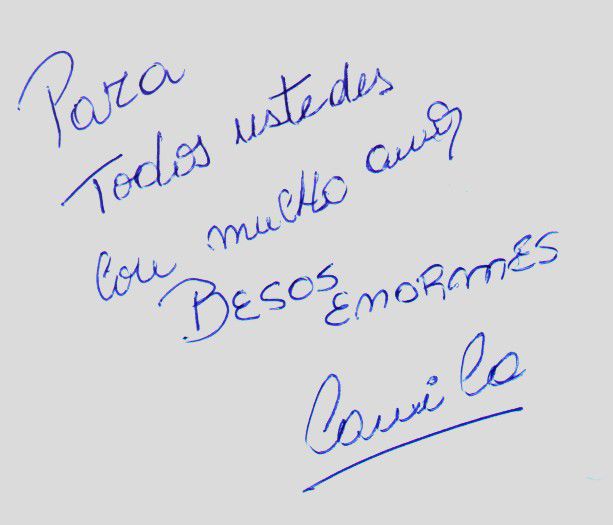 Para
Todos ustedes
con mucho amor
BESOS ENORMES
Camilo